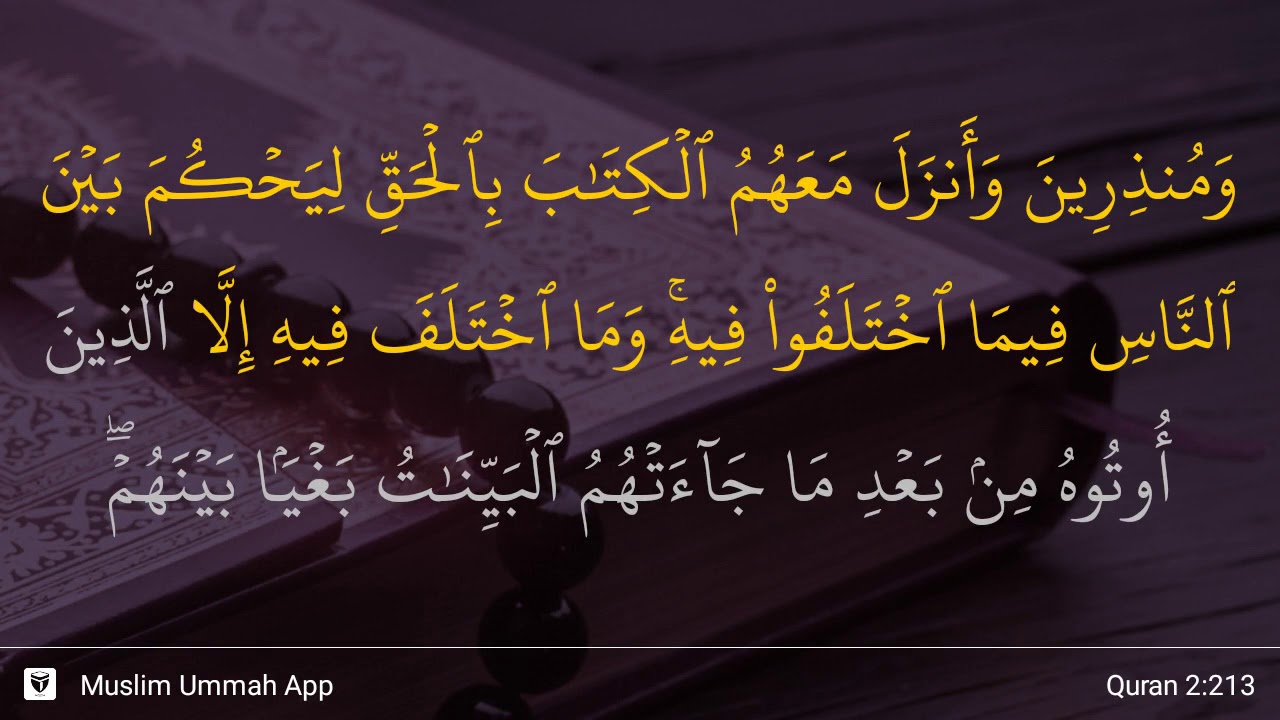 وَمُنذِرِينَ وَأَنزَلَ مَعَهُمُ ٱلْكِتَـٰبَ بِٱلْحَقِّ لِيَحْكُمَ بَيْنَ
ٱلنَّاسِ فِيمَا ٱخْتَلَفُوا۟ فِيهِ ۚ وَمَا ٱخْتَلَفَ فِيهِ إِلَّا ٱلَّذِينَ
أُوتُوهُ مِنۢ بَعْدِ مَا جَآءَتْهُمُ ٱلْبَيِّنَـٰتُ بَغْيَۢا بَيْنَهُمْ ۖ
Muslim Ummah App
Quran 2:213